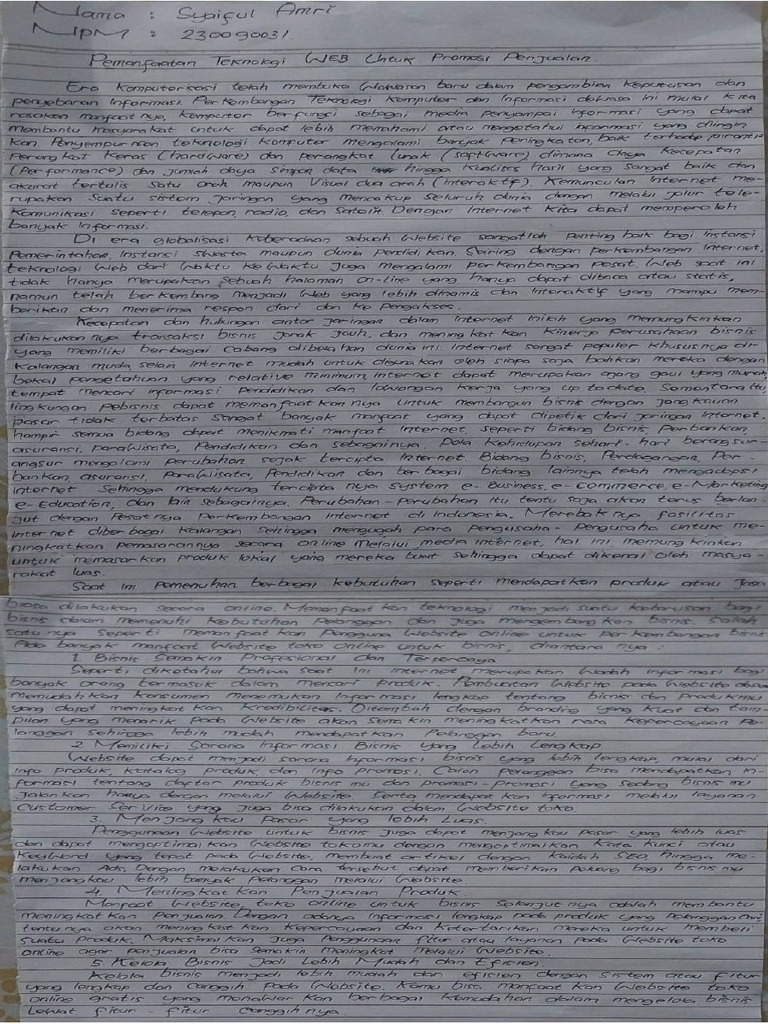 Nama : Syaiful Amri
NPM : 230090031
Pemanfaatan Teknologi WEB Untuk Promosi Penjualan.
Era Komputerisasi telah membuka Wawasan baru dalam pengambilan Keputusan dan
penyebaran Informasi. Perkembangan Teknologi Komputer dan Informasi dewasa ini mulai kita
rasakan manfaatnya, Komputer berfungsi sebagai media penyampai informasi yang dapat
membantu masyarakat untuk dapat lebih memahami atau mengetahui informasi yang diingin
kan. Penyempurnaan teknologi komputer mengalami banyak peningkatan, baik terhadap
Perangkat Keras (hardware) dan perangkat lunak (software) dimana daya Kecepatan
(Performance) dan jumlah daya simpan data hingga kualitas hasil yang sangat baik dan
akurat tertulis satu arah maupun Visual dua arah (interaktif). Kemunculan Internet me-
rupakan Suatu sistem jaringan yang mencakup seluruh dunia dengan melalui jalur tele-
komunikasi seperti telepon, radio, dan Satelit. Dengan Internet Kita dapat memperoleh
banyak Informasi.
Di era globalisasi Keberadaan sebuah Website sangatlah penting baik bagi Instansi
Pemerintahan, Instansi swasta maupun dunia pendidikan. Seiring dengan perkembangan Internet,
teknologi Web dari Waktu Ke Waktu Juga mengalami perkembangan pesat. Web saat ini
tidak hanya merupakan sebuah halaman on-line yang hanya dapat dibaca atau statis,
namun telah berkembang menjadi Web yang lebih dinamis dan Interaktif yang mampu mem-
berikan dan menerima respon dari dan ke Pengakses.
Kecepatan dan hubungan antar jaringan dalam internet inilah yang memungkinkan
dilakukannya transaksi bisnis jarak jauh, dan meningkatkan kinerja perusahaan bisnis
yang memiliki berbagai Cabang dibelahan dunia ini. Internet sangat populer khususnya di
Kalangan muda, selain Internet mudah untuk digunakan oleh siapa saja bahkan mereka dengan
bekal pengetahuan yang relative minimum, Internet dapat merupakan ajang gaul yang murah,
tempat mencari informasi Pendidikan dan lowongan kerja yang up to date. Sementara itu
lingkungan Pebisnis dapat memanfaatkannya untuk membangun bisnis dengan jangkauan
pasar tidak terbatas. Sangat banyak manfaat yang dapat dipetik dari jaringan Internet,
hampir semua bidang dapat menikmati manfaat Internet, seperti bidang bisnis Perbankan,
asuransi, parawisata, Pendidikan dan sebagainya. Pola Kehidupan sehari-hari berangsur-
angsur mengalami perubahan sejak tercipta Internet. Bidang bisnis, Perdagangan, Per-
bankan, asuransi, Parawisata, Pendidikan dan berbagai bidang lainnya telah mengadopsi
Internet Sehingga mendukung terciptanya System e-Business, e-Commerce, e-Marketing
e-Education, dan lain Sebagainya. Perubahan-perubahan itu tentu saja akan terus berlan-
jut dengan Pesatnya Perkembangan Internet di Indonesia. Merebaknya fasilitas
Internet diberbagai Kalangan Sehingga menggugah para Pengusaha-Pengusaha untuk me-
ningkatkan pemasarannya secara online melalui media internet, hal ini memungkinkan
untuk memasarkan produk lokal yang mereka buat sehingga dapat dikenal oleh masya-
rakat luas.
Saat Ini Pemenuhan berbagai kebutuhan seperti mendapatkan produk atau Jasa
biasa dilakukan secara online. Memanfaatkan teknologi menjadi suatu keharusan bagi
bisnis dalam memenuhi Kebutuhan Pelanggan dan Juga mengembangkan bisnis. Salah
satunya Seperti memanfaatkan Pengguna Website online untuk perkembangan bisnis
Ada banyak manfaat Website toko Online untuk bisnis, diantaranya :
1. Bisnis Semakin Profesional dan Terpercaya
Seperti diketahui bahwa saat ini internet merupakan Wadah informasi bagi
banyak orang termasuk dalam mencari produk. Pembuatan Website pada Website dasar
memudahkan Konsumen menemukan Informasi lengkap tentang bisnis dan produkmu
yang dapat meningkatkan Kredibilitas. Ditambah dengan branding yang Kuat dan tam-
pilan yang menarik pada Website akan Semakin meningkatkan rasa Kepercayaan Pe-
langgan sehingga lebih mudah mendapatkan Pelanggan baru
2. Memiliki Sarana Informasi Bisnis yang Lebih Lengkap
Website dapat menjadi sarana Informasi bisnis yang lebih lengkap, mulai dari
info produk, katalog produk, dan info promosi. Calon pelanggan bisa mendapatkan in-
formasi tentang daftar produk bisnis mu dan promosi-promosi yang Sedang bisnis mu
jalankan hanya dengan melalui Website. Serta mendapatkan Informasi melalui layanan
Customer Service yang juga bisa dilakukan dalam Website toko.
3. Menjangkau Pasar yang lebih Luas.
Penggunaan Website untuk bisnis juga dapat menjangkau pasar yang lebih luas
dan dapat mengoptimalkan Website tokomu dengan mengoptimalkan Kata Kunci atau
Keyword yang tepat pada Website, membuat artikel dengan Kaidah Seo, hingga me-
lakukan Ads. Dengan melakukan Cara tersebut dapat memberikan peluang bagi bisnis mu
menjangkau lebih banyak Pelanggan melalui Website
4. Meningkatkan Penjualan Produk.
Manfaat Website toko online untuk bisnis Selanjutnya adalah membantu
meningkatkan Penjualan. Dengan adanya Informasi lengkap pada produk yang Pelanggan Cari
tentunya akan meningkatkan Kepercayaan dan Ketertarikan mereka untuk membeli
suatu produk. Maksimalkan Juga Penggunaan fitur atau layanan pada Website toko
online agar penjualan bisa Semakin meningkat melalui Website.
5. Kelola Bisnis Jadi Lebih Mudah dan Efisien
Kelola bisnis menjadi lebih mudah dan efisien dengan Sistem atau fitur
yang lengkap dan Canggih pada Website. Kamu bisa manfaatkan Website toko
online gratis yang menawarkan berbagai Kemudahan dalam mengelola bisnis
Lewat fitur-fitur Canggihnya